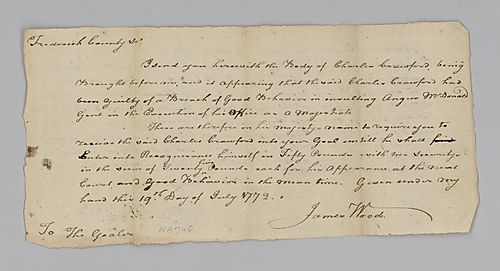 Frederick County Sc.
I send you herewith the Body of Charles Crawford, being
Brought before me, and it appearing that the said Charles Crawford had
been guilty of a Breach of Good Behavior in insulting Angus McDonald
Gent in the Execution of his office as a Majestrate
These are therefore in his Majestys name to require you to
receive the said Charles Crawford into your Goal untill he shall
Enter into Recognizance himself in Fifty Pounds with two Securitys
in the sum of Twenty Pounds each for his Appearance at the next
Court and Good Behavior in the mean time. Given under my
hand this 19th Day of July 1772.
James Wood.
To The Goaler